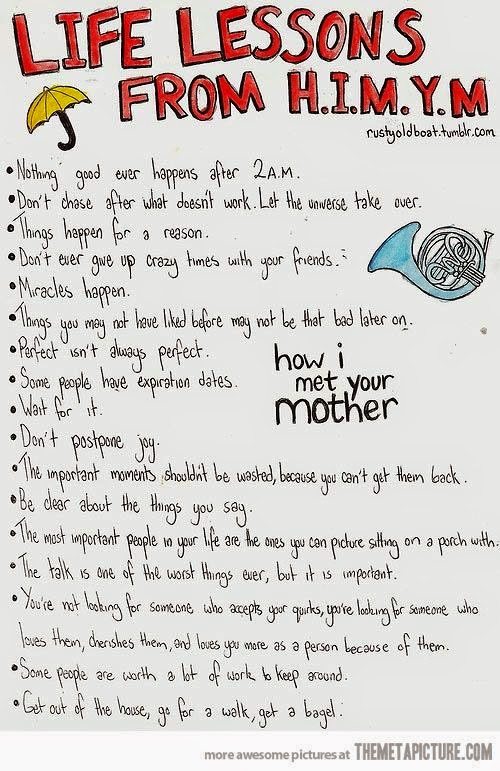 LIFE LESSONS
FROM H.I.M.Y.M
rustyoldboat.tumblr.com
• Nothing good ever happens after 2A.M.
• Don't chase after what doesn't work. Let the universe take over.
• Things happen for a reason.
• Don't ever give up crazy times with your friends.
• Miracles happen.
• Things you may not have liked before may not be that bad later on.
• Perfect isn't always perfect.
• Some people have expiration dates.
• Wait for it.
how i
met your
mother
• Don't postpone joy.
• The important moments shouldn't be wasted, because you can't get them back.
• Be clear about the things you say.
• The most important people in your life are the ones you can picture sitting on a porch with.
• The talk is one of the worst things ever, but it is important.
• You're not looking for someone who accepts your quirks, you're looking for someone who
loves them, cherishes them, and loves you more as a person because of them.
• Some people are worth a lot of work to keep around.
• Get out of the house, go for a walk, get a bagel.
more awesome pictures at THEMETAPICTURE.COM